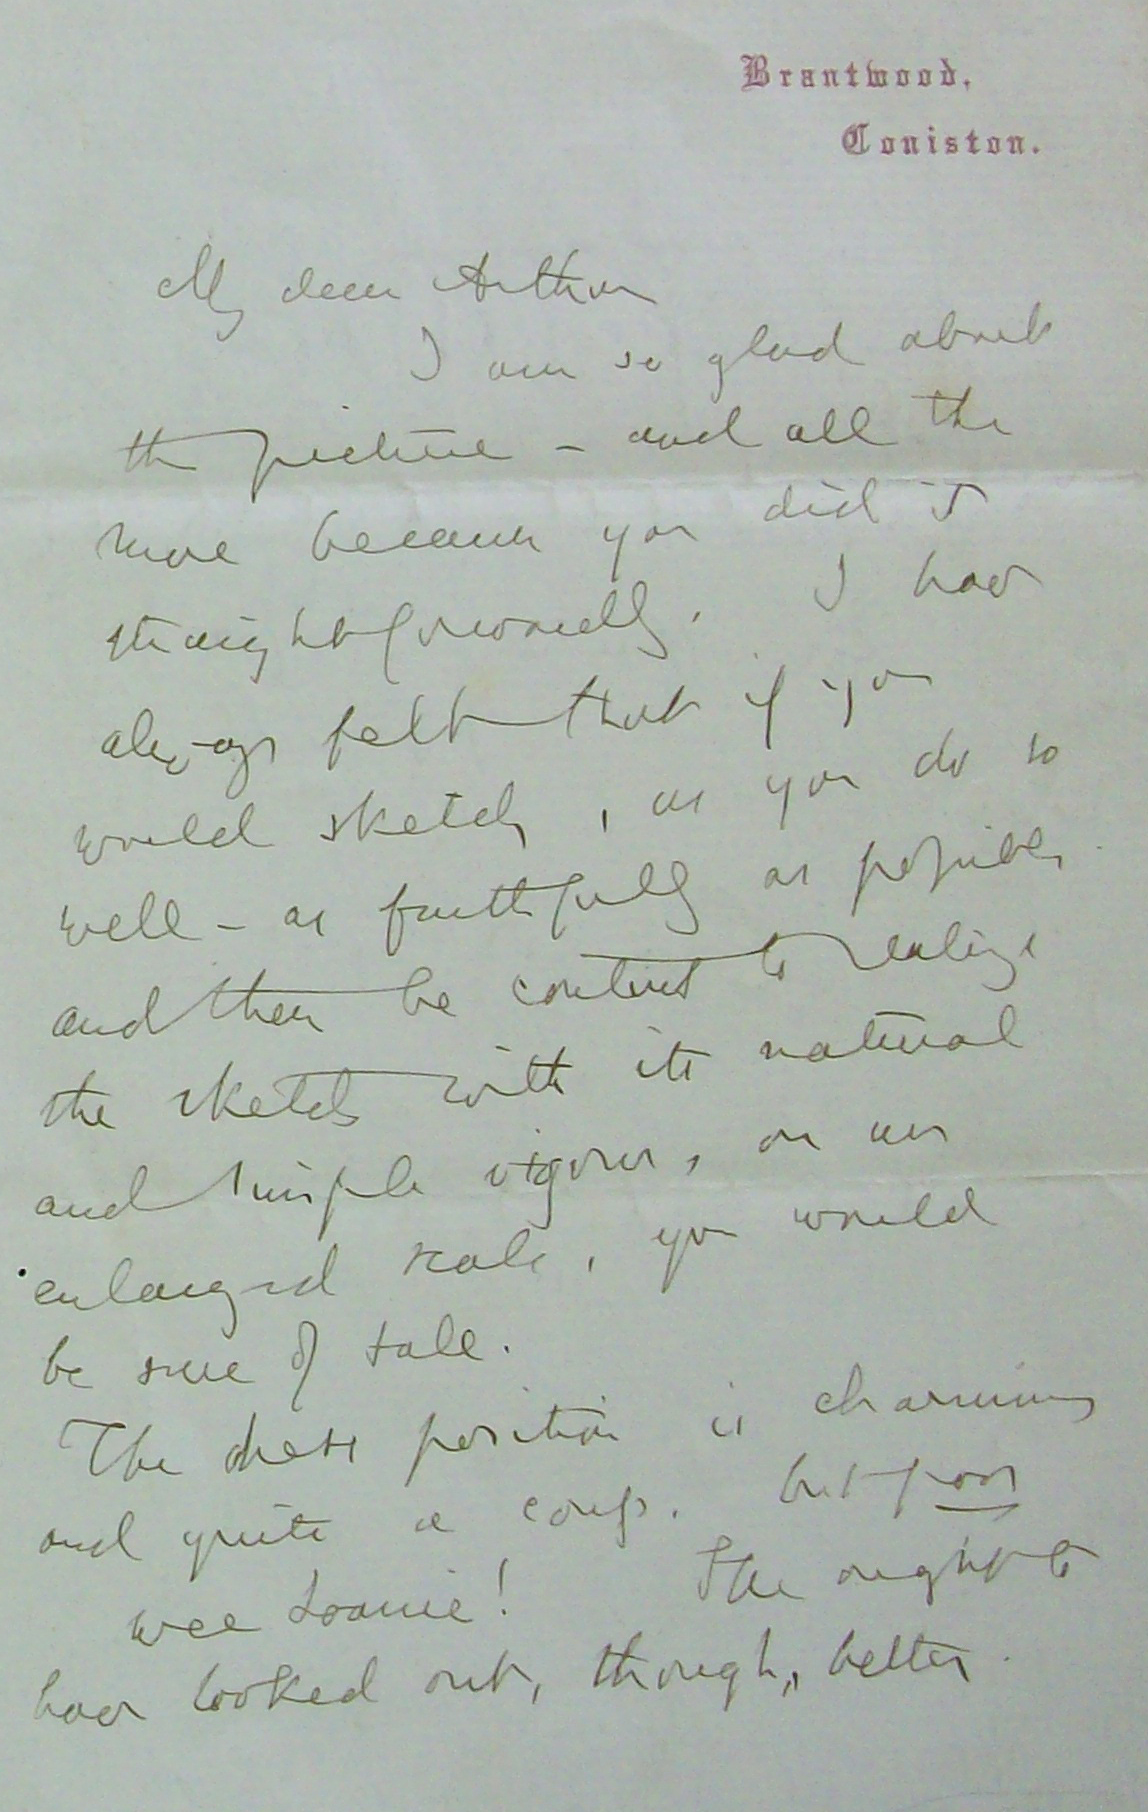 Brantwood,
Coniston.
My dear Arthur
I am so glad about
the picture – and all the
more because you did it
straightforwardly. I have
always felt that if you
would sketch, as you do so
well – as faithfully as possible,
and then be content to realize
the sketch with its natural
and simple vigour, on an
enlarged scale, you would
be sure of sale.
The chess position is charming
and quite a coup. but poor
wee Joanie! She ought to
have looked out, though, better.